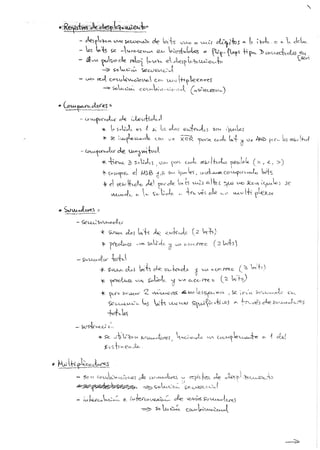 • Registros de desplazamiento
- desplazan una secuencia de bits uno o más dígitos a la izda. o a la dcha.
- los bits se almacenan en biestables o flip-flops tipo D conectados en serie
- a un pulso de reloj tienen el desplazamiento
=> solución secuencial
- una red combinacional con multiplexores
=> solución combinacional
• Comparadores
- comparador de identidad
* la salida es 1 si las dos entradas son iguales
* se implementa con un XOR para cada bit y un AND para los resultados
- comparador de magnitud
* tiene 3 salidas, una por cada resultado posible (=, <, >)
* compara el MSB y, si son iguales, continúa comparando bits
* el resultado del par de bits más altos que no sean iguales se
manda a la salida a través de un multiplexor
• Sumadores
- semisumador
* suma dos bits de entrada (2 bits)
* produce una salida y un acarreo (2 bits)
- sumador total
* suma dos bits de entrada y un acarreo (3 bits)
* produce una salida y un acarreo (2 bits)
* para sumar 2 números
secuencia los bits a través de sumadores
totales
- sustracción
* se utilizan sumadores, haciendo un complemento a 1 del
sustraendo
• Multiplicadores
- son combinaciones de sumadores y registros de desplazamiento
=> solución secuencial
- interconexión de varios sumadores
=> solución combinacional